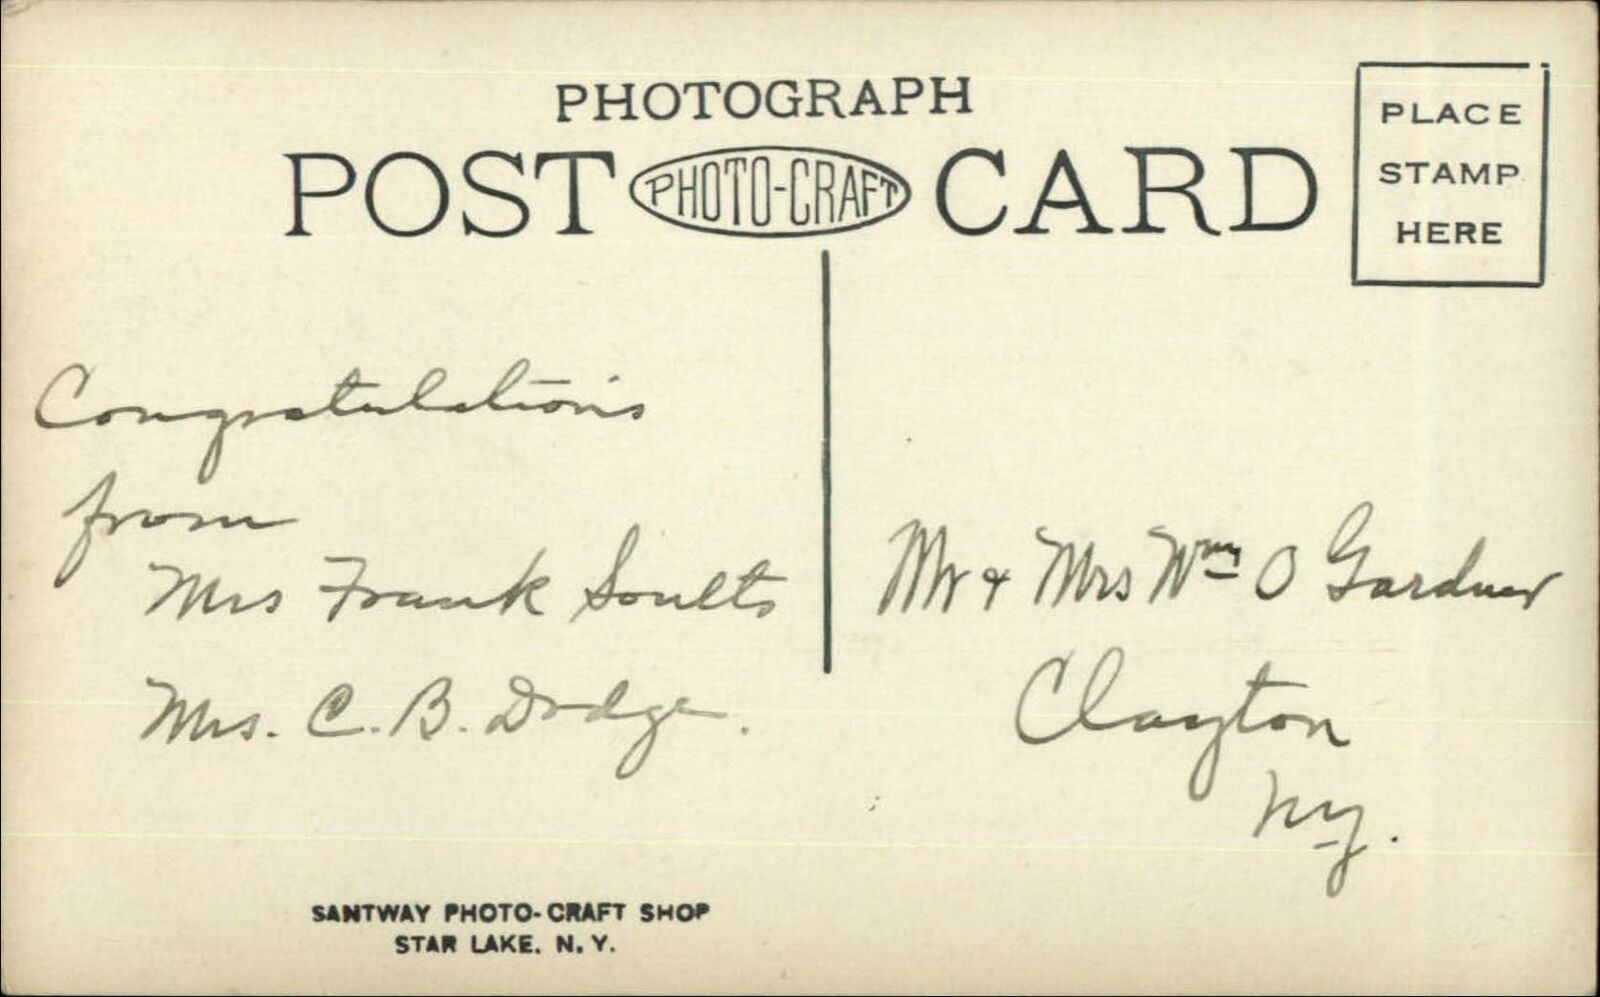 PHOTOGRAPH
POST PHOTO-CRAFT CARD
PLACE
STAMP
HERE
Congratulations
from
Mrs Frank Soults
Mrs. C. B. Dodge.
Mr & Mrs Wm O Gardner
Clayton
NY.
SANTWAY PHOTO-CRAFT SHOP
STAR LAKE, N.Y.